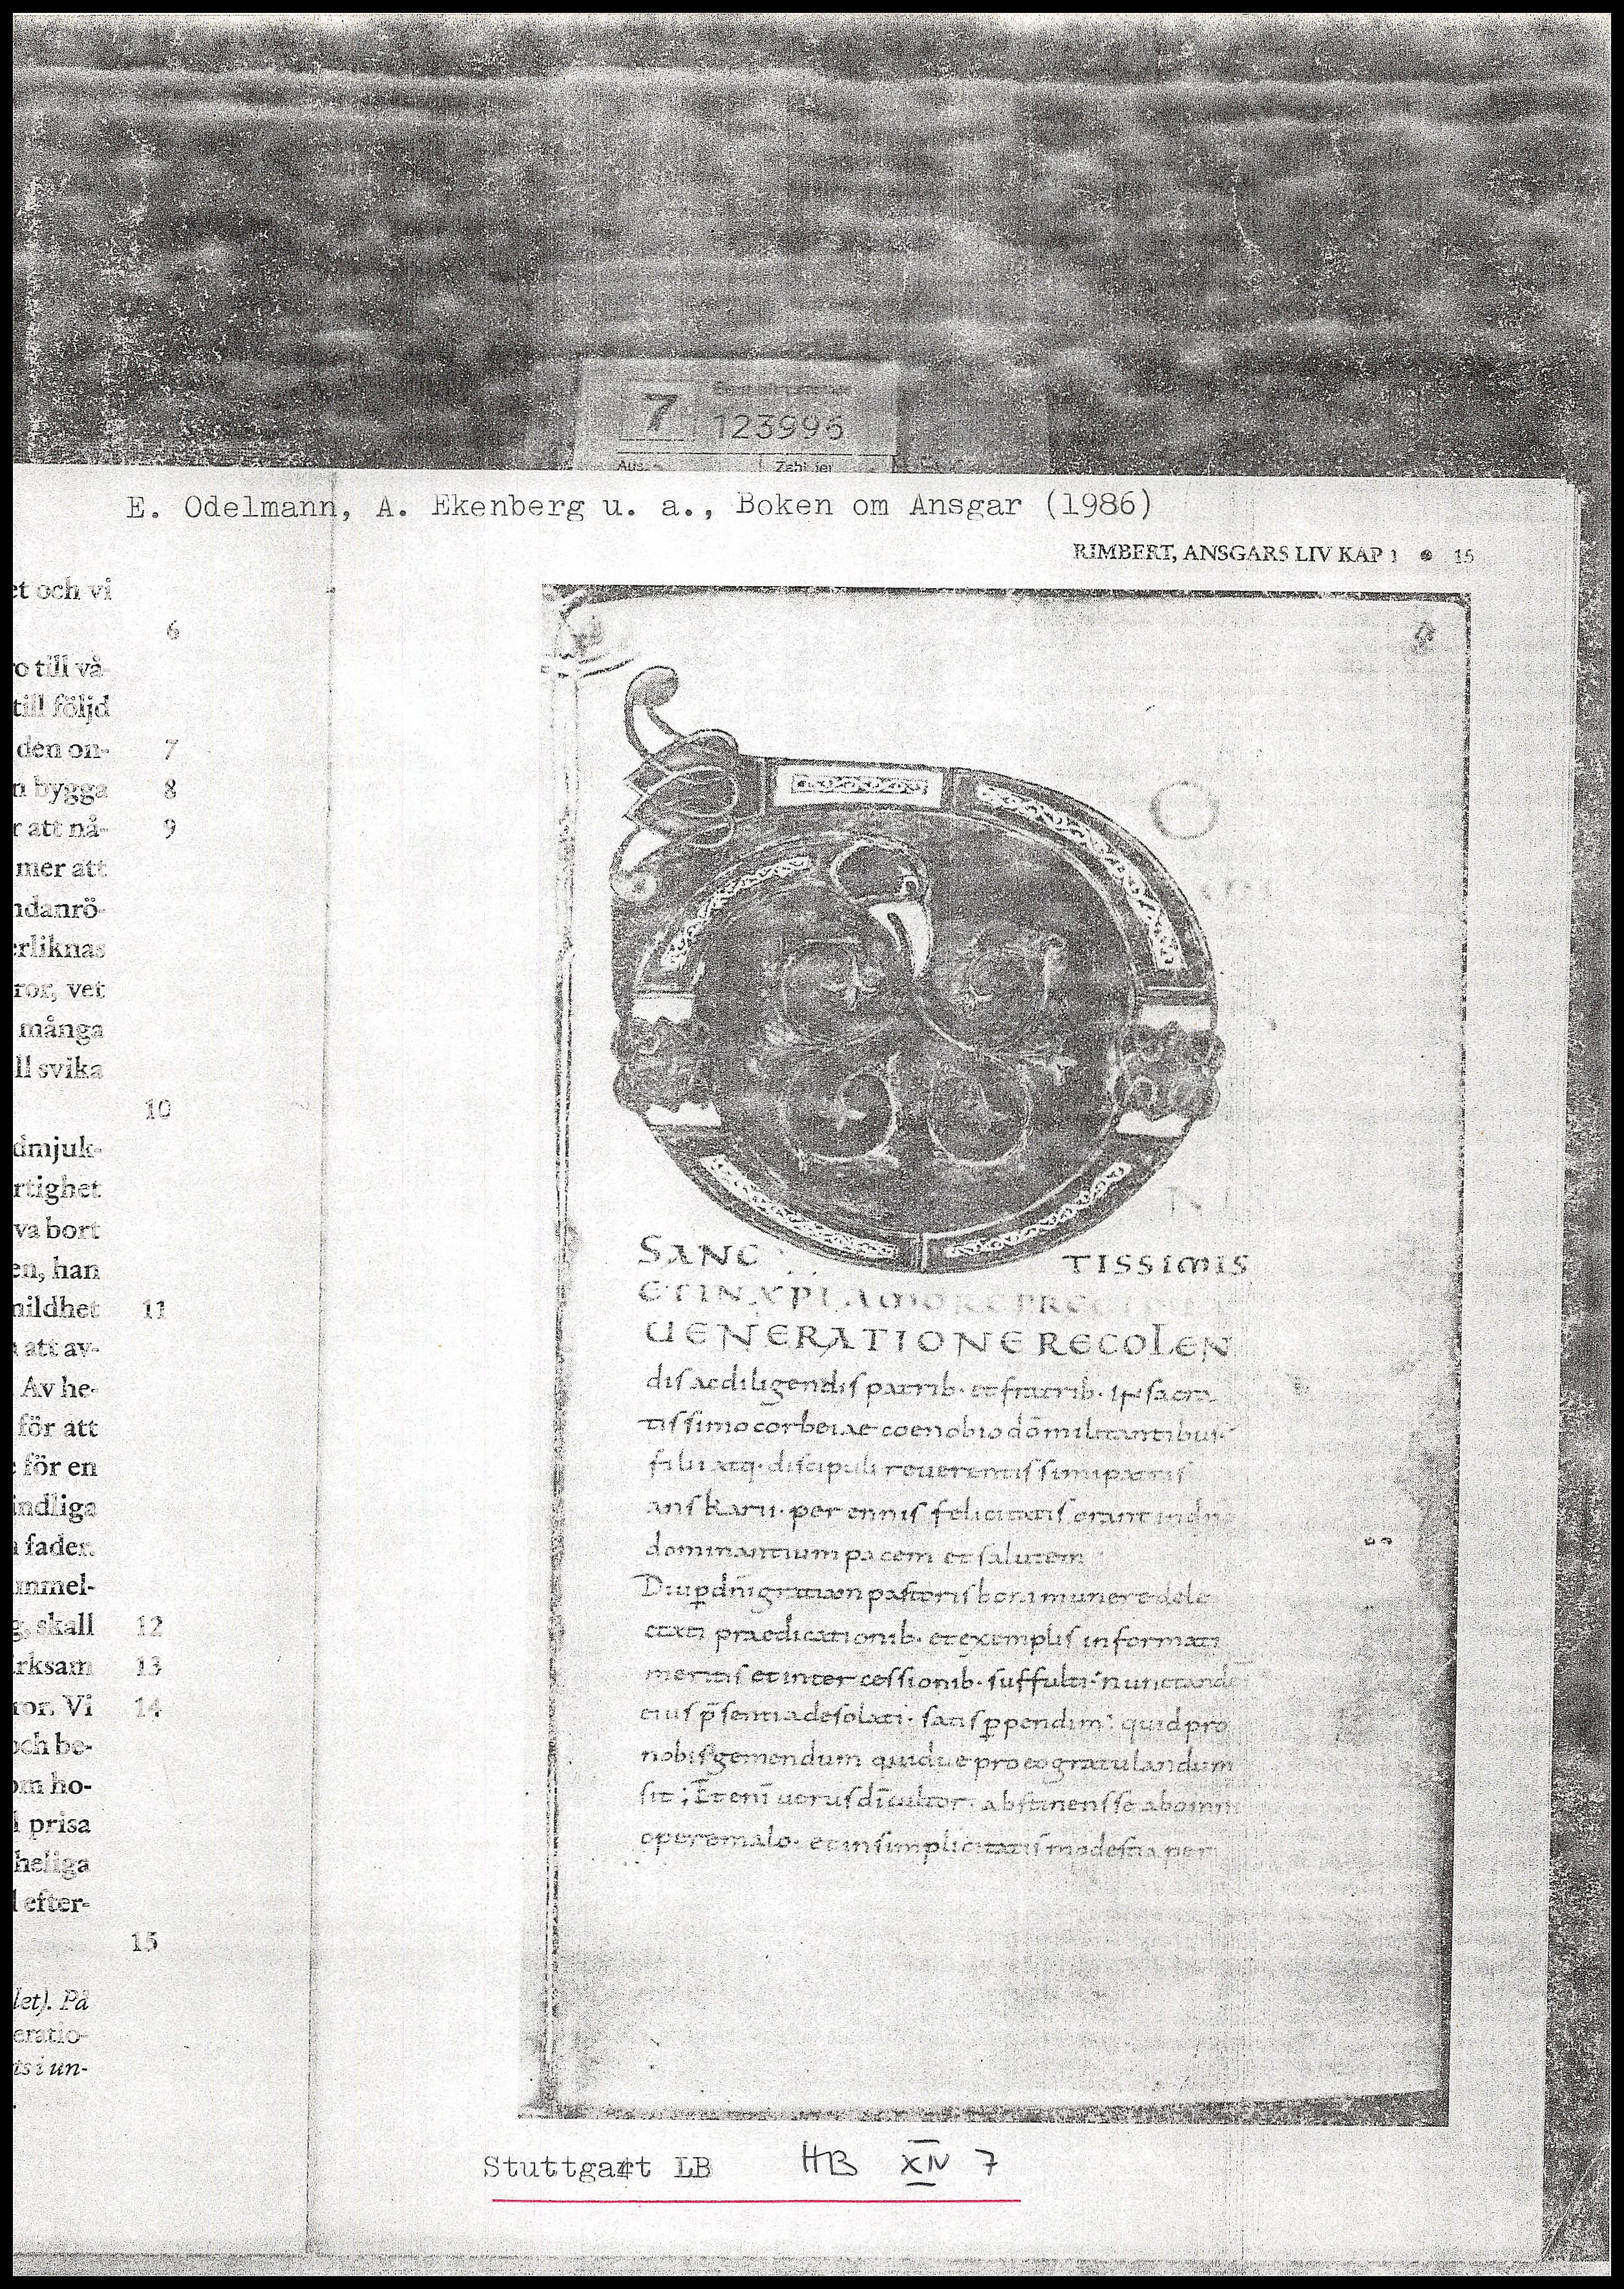 7
123996
Aus.
Zahl der
E. Odelmann, A. Ekenberg u. a., Boken om Ansgar (1986)
RIMBERT, ANSGARS LIV KAP 1 ● 15
et och vi
6
ro till vå-
till följd
den on- 7
n bygga 8
r att nå- 9
mer att
ndanrö-
erliknas
ror, vet
många
ll svika
10
dmjuk-
rtighet
va bort
en, han
nildhet 11
att av-
Av he-
för att
för en
indliga
fader.
immel-
g, skall 12
irksam 13
ror. Vi 14
och be-
om ho-
prisa
heliga
efter-
15
let). På
eratio-
ts i un-
SANC TISSIMIS
ET IN XPI AMORE PRECIPUA
UENERATIONE RECOLEN
dis ac diligendis patrib· et fratrib· in sacra
tissimo corbeiae coenobio dō militantibus·
filii atq· discipuli reuerentissimi patris
anskarii· perennis felicitatis orant in dno
dominantium pacem et salutem
Diu p dn̄i gratiam pastoris boni munere dele
ctati praedicationib· et exemplis informati
meritis et inter cessionib· suffulti· nunc tande
eius p̄sentia desolati· satis ppendim: quid pro
nobis gemendum quidue pro eo gratulandum
sit; Et eni uerus dī cultor· abstinens se ab omni
opere malo· et in simplicitatis modestia per
Stuttgart LB HB XIV 7